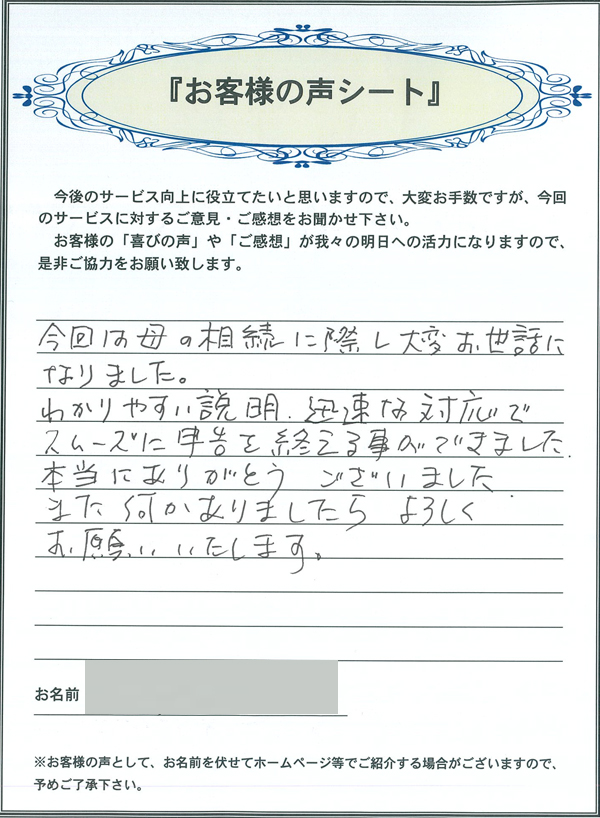 『お客様の声シート』
今後のサービス向上に役立てたいと思いますので、大変お手数ですが、今回
のサービスに対するご意見・ご感想をお聞かせ下さい。
お客様の「喜びの声」や「ご感想」が我々の明日への活力になりますので、
是非ご協力をお願い致します。
今回は母の相続に際し大変お世話に
なりました。
わかりやすい説明、迅速な対応で
スムーズに申告を終える事ができました。
本当にありがとうございました
また何かありましたらよろしく
お願いいたします。
お名前
※お客様の声として、お名前を伏せてホームページ等でご紹介する場合がございますので、
予めご了承下さい。